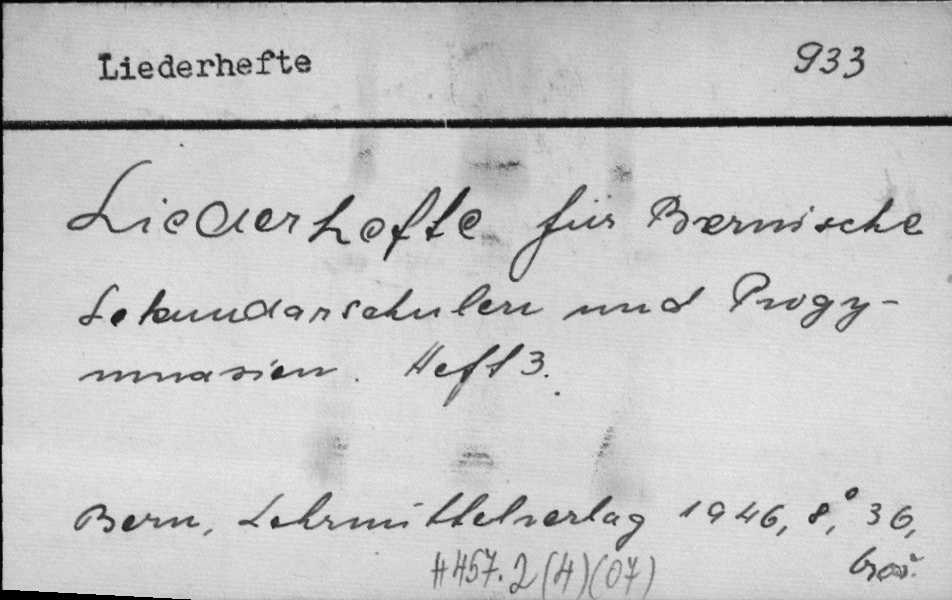 Liederhefte 933
Liederhefte für Bernische
Sekundarschulen und Progy-
mnasien. Heft 3.
Bern, Lehrmittelverlag 1946, 8°, 36,
brosch.
#457.2(4)(07)